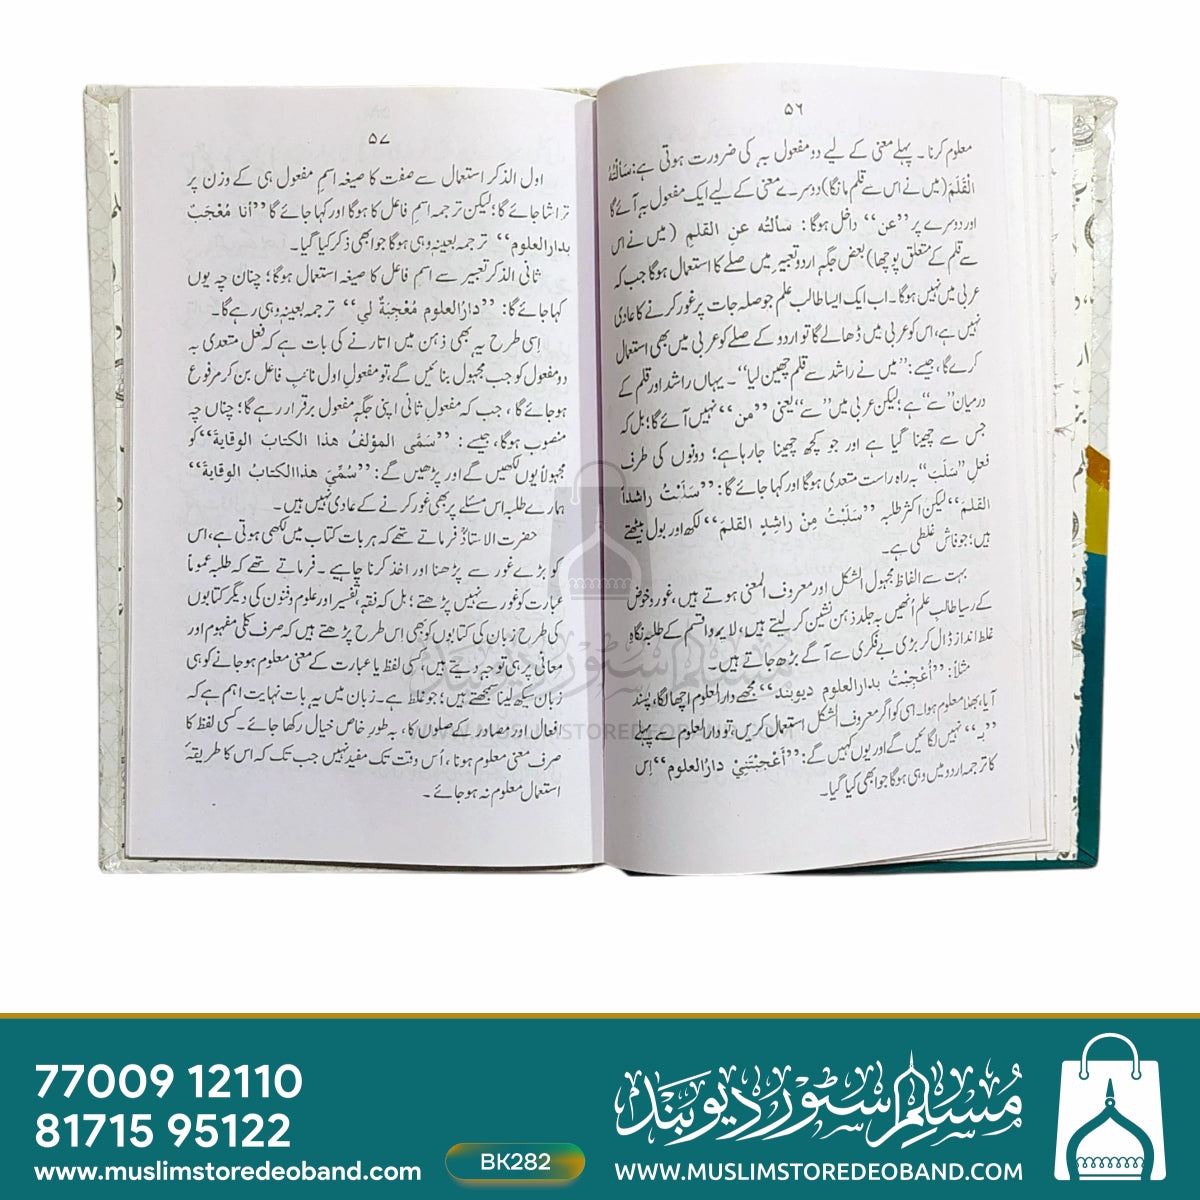 ۵۶
معلوم کرنا۔ پہلے معنی کے لیے دو مفعول بہٖ کی ضرورت ہوتی ہے: سَألْتُهُ
الْقَلَمَ (میں نے اس سے قلم مانگا) دوسرے معنی کے لیے ایک مفعول بہٖ آئے گا
اور دوسرے پر ”عن“ داخل ہوگا: سَألتُه عنِ القلمِ (میں نے اس
سے قلم کے متعلق پوچھا) بعض جگہ اردو تعبیر میں صلے کا استعمال ہوگا جب کہ
عربی میں نہیں ہوگا۔ اب ایک ایسا طالب علم جو صلہ جات پر غور کرنے کا عادی
نہیں ہے، اس کو عربی میں ڈھالے گا تو اردو کے صلے کو عربی میں بھی استعمال
کرے گا، جیسے: ”میں نے راشد سے قلم چھین لیا“۔ یہاں راشد اور قلم کے
درمیان ”سے“ ہے؛ لیکن عربی میں ”سے“ یعنی ”من“ نہیں آئے گا؛ بل کہ
جس سے چھینا گیا ہے اور جو کچھ چھینا جا رہا ہے؛ دونوں کی طرف
فعل ”سَلَبَ“ بہ راہ راست متعدی ہوگا اور کہا جائے گا: ”سَلَبْتُ راشداً
القلمَ“ لیکن اکثر طلبہ ”سَلَبْتُ مِنْ راشدٍ القلمَ“ لکھ اور بول بیٹھتے
ہیں؛ جو فاش غلطی ہے۔
بہت سے الفاظ مجہول الشکل اور معروف المعنی ہوتے ہیں، غور و خوض
کے رسیا طالب علم اُنھیں بہ جلد ذہن نشین کر لیتے ہیں، لا پروا قسم کے طلبہ نگاہِ
غلط انداز ڈال کر بڑی بے فکری سے آگے بڑھ جاتے ہیں۔
مثلاً: ”أعْجِبْتُ بدارِ العلوم دیوبند“ مجھے دارالعلوم اچھا لگا، پسند
آیا، بھلا معلوم ہوا۔ اسی کو اگر معروف الشکل استعمال کریں، تو دارالعلوم سے پہلے
”بہ“ نہیں لگائیں گے اور یوں کہیں گے: ”أعْجَبَتْنِيْ دارُ العلوم“ اِس
کا ترجمہ اردو میں وہی ہوگا جو ابھی کیا گیا۔
۵۷
اول الذکر استعمال سے صفت کا صیغہ اسمِ مفعول ہی کے وزن پر
تراشا جائے گا؛ لیکن ترجمہ اسم فاعل کا ہوگا اور کہا جائے گا ”أنا مُعْجَبٌ
بدارِ العلوم“ ترجمہ بعینہٖ وہی ہوگا جو ابھی ذکر کیا گیا۔
ثانی الذکر تعبیر سے اسم فاعل کا صیغہ استعمال ہوگا؛ چنان چہ یوں
کہا جائے گا: ”دارُ العلوم مُعْجِبَةٌ لي“ ترجمہ بعینہٖ وہی رہے گا۔
اِسی طرح یہ بھی ذہن میں اتارنے کی بات ہے کہ فعل متعدی بہ
دو مفعول کو جب مجہول بنائیں گے، تو مفعولِ اول نائب فاعل بن کر مرفوع
ہو جائے گا، جب کہ مفعولِ ثانی اپنی جگہ مفعول برقرار رہے گا؛ چناں چہ
منصوب ہوگا، جیسے: ”سَمَّى المؤلفُ هذا الكتابَ الوقايةَ“ کو
مجہولاً یوں لکھیں گے اور پڑھیں گے: ”سُمِّيَ هذا الكتابُ الوقايةَ“
ہمارے طلبہ اس مسئلے پر بھی غور کرنے کے عادی نہیں ہیں۔
حضرت الاستاذؒ فرماتے تھے کہ ہر بات کتاب میں لکھی ہوتی ہے، اس
کو بڑے غور سے پڑھنا اور اخذ کرنا چاہیے۔ فرماتے تھے کہ طلبہ عموماً
عبارت کو غور سے نہیں پڑھتے؛ بل کہ فقہ، تفسیر اور علوم و فنون کی دیگر کتابوں
کی طرح زبان کی کتابوں کو بھی اِس طرح پڑھتے ہیں کہ صرف کلی مفہوم اور
معانی پر ہی توجہ دیتے ہیں، کسی لفظ یا عبارت کے معنی معلوم ہو جانے کو ہی
زبان سیکھ لینا سمجھتے ہیں؛ جو غلط ہے۔ زبان میں یہ بات نہایت اہم ہے کہ
افعال اور مصادر کے صلوں کا، بہ طورِ خاص خیال رکھا جائے۔ کسی لفظ کا
صرف معنی معلوم ہونا، اُس وقت تک مفید نہیں جب تک کہ اس کا طریقۂ
استعمال معلوم نہ ہو جائے۔
مسلم سٹور دیوبند
WWW.MUSLIMSTOREDEOBAND.COM
77009 12110
81715 95122
www.muslimstoredeoband.com
BK282
مسلم سٹور دیوبند
www.MUSLIMSTOREDEOBAND.COM